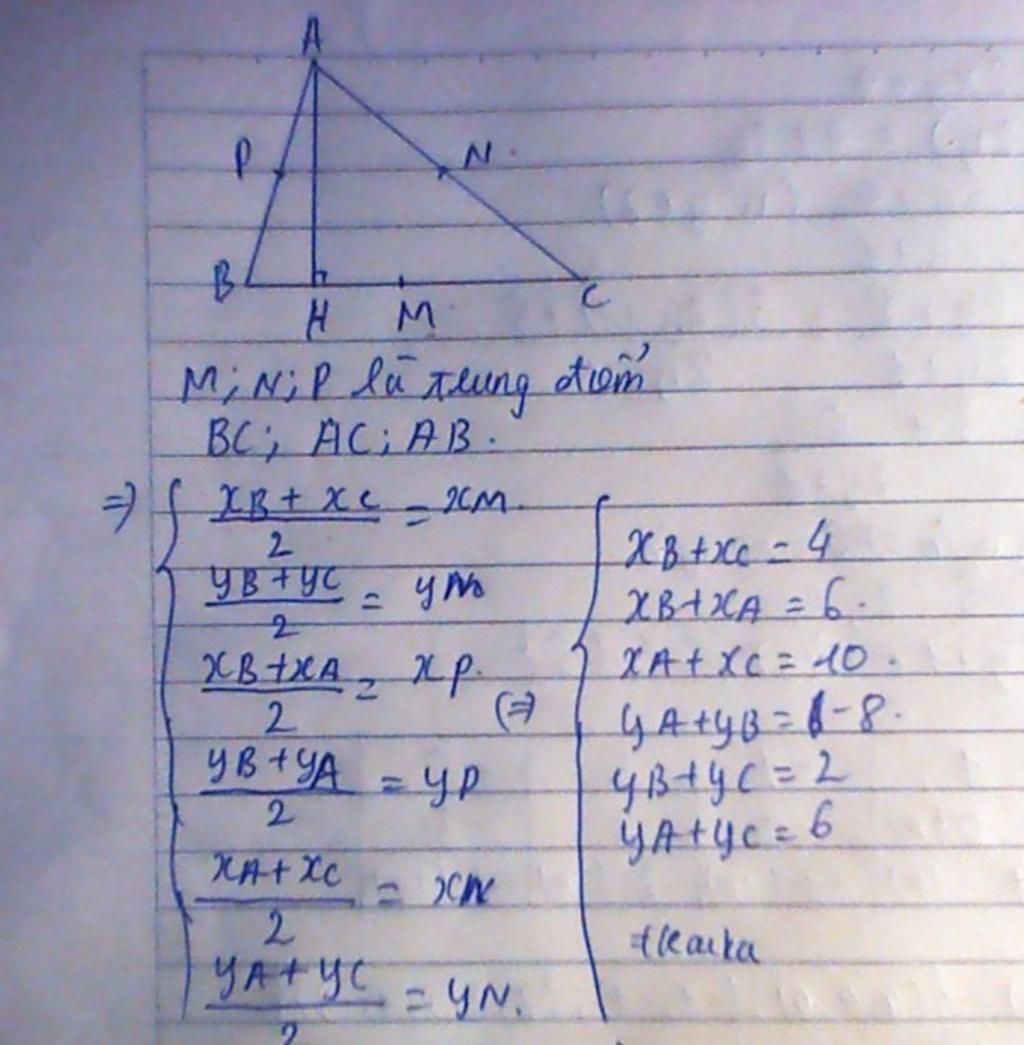 A
P N.
B H M C
M; N; P là trung điểm
BC; AC; AB.
=> { (xB + xC)/2 = xM.
(yB + yC)/2 = yM
(xB + xA)/2 = xP.
(yB + yA)/2 = yP
(xA + xC)/2 = xN
(yA + yC)/2 = yN.
(=> { xB + xC = 4
xB + xA = 6.
xA + xC = 10.
yA + yB = -8.
yB + yC = 2
yA + yC = 6